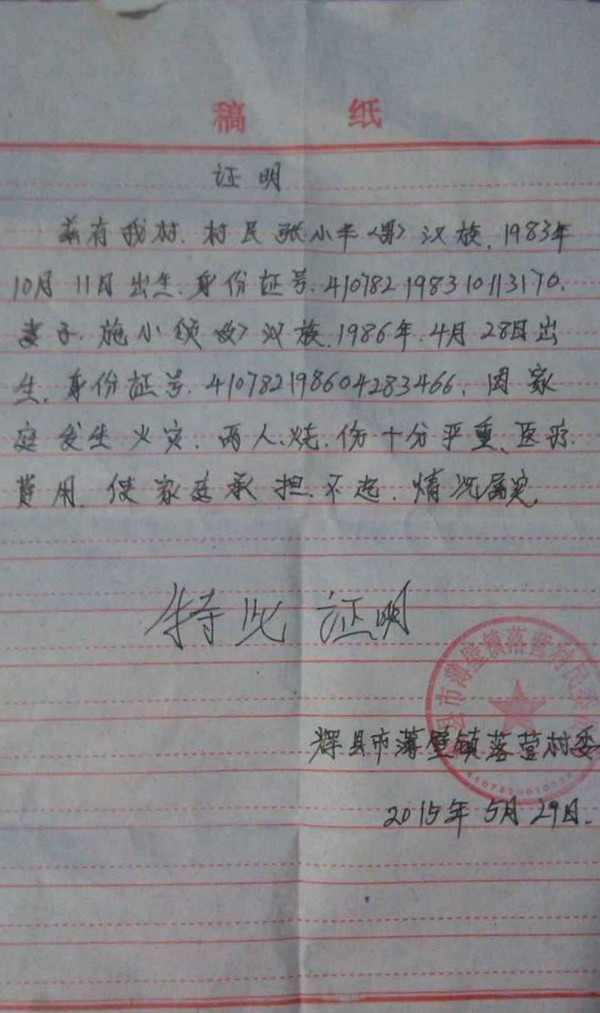 稿 纸
证明
兹有我村.村民张小半〈男〉汉族.1983年
10月11月出生.身份证号.410782198310113170.
妻子.施小领〈女〉汉族.1986年.4月28日出
生.身份证号.410782198604283466.因家
庭发生火灾.两人.烧.伤十分严重.医疗
费用.使家庭承担.不起.情况属实.
特此 证明
县市薄壁镇落营村民委
辉县市薄壁镇落营村委
2015年5月29日.